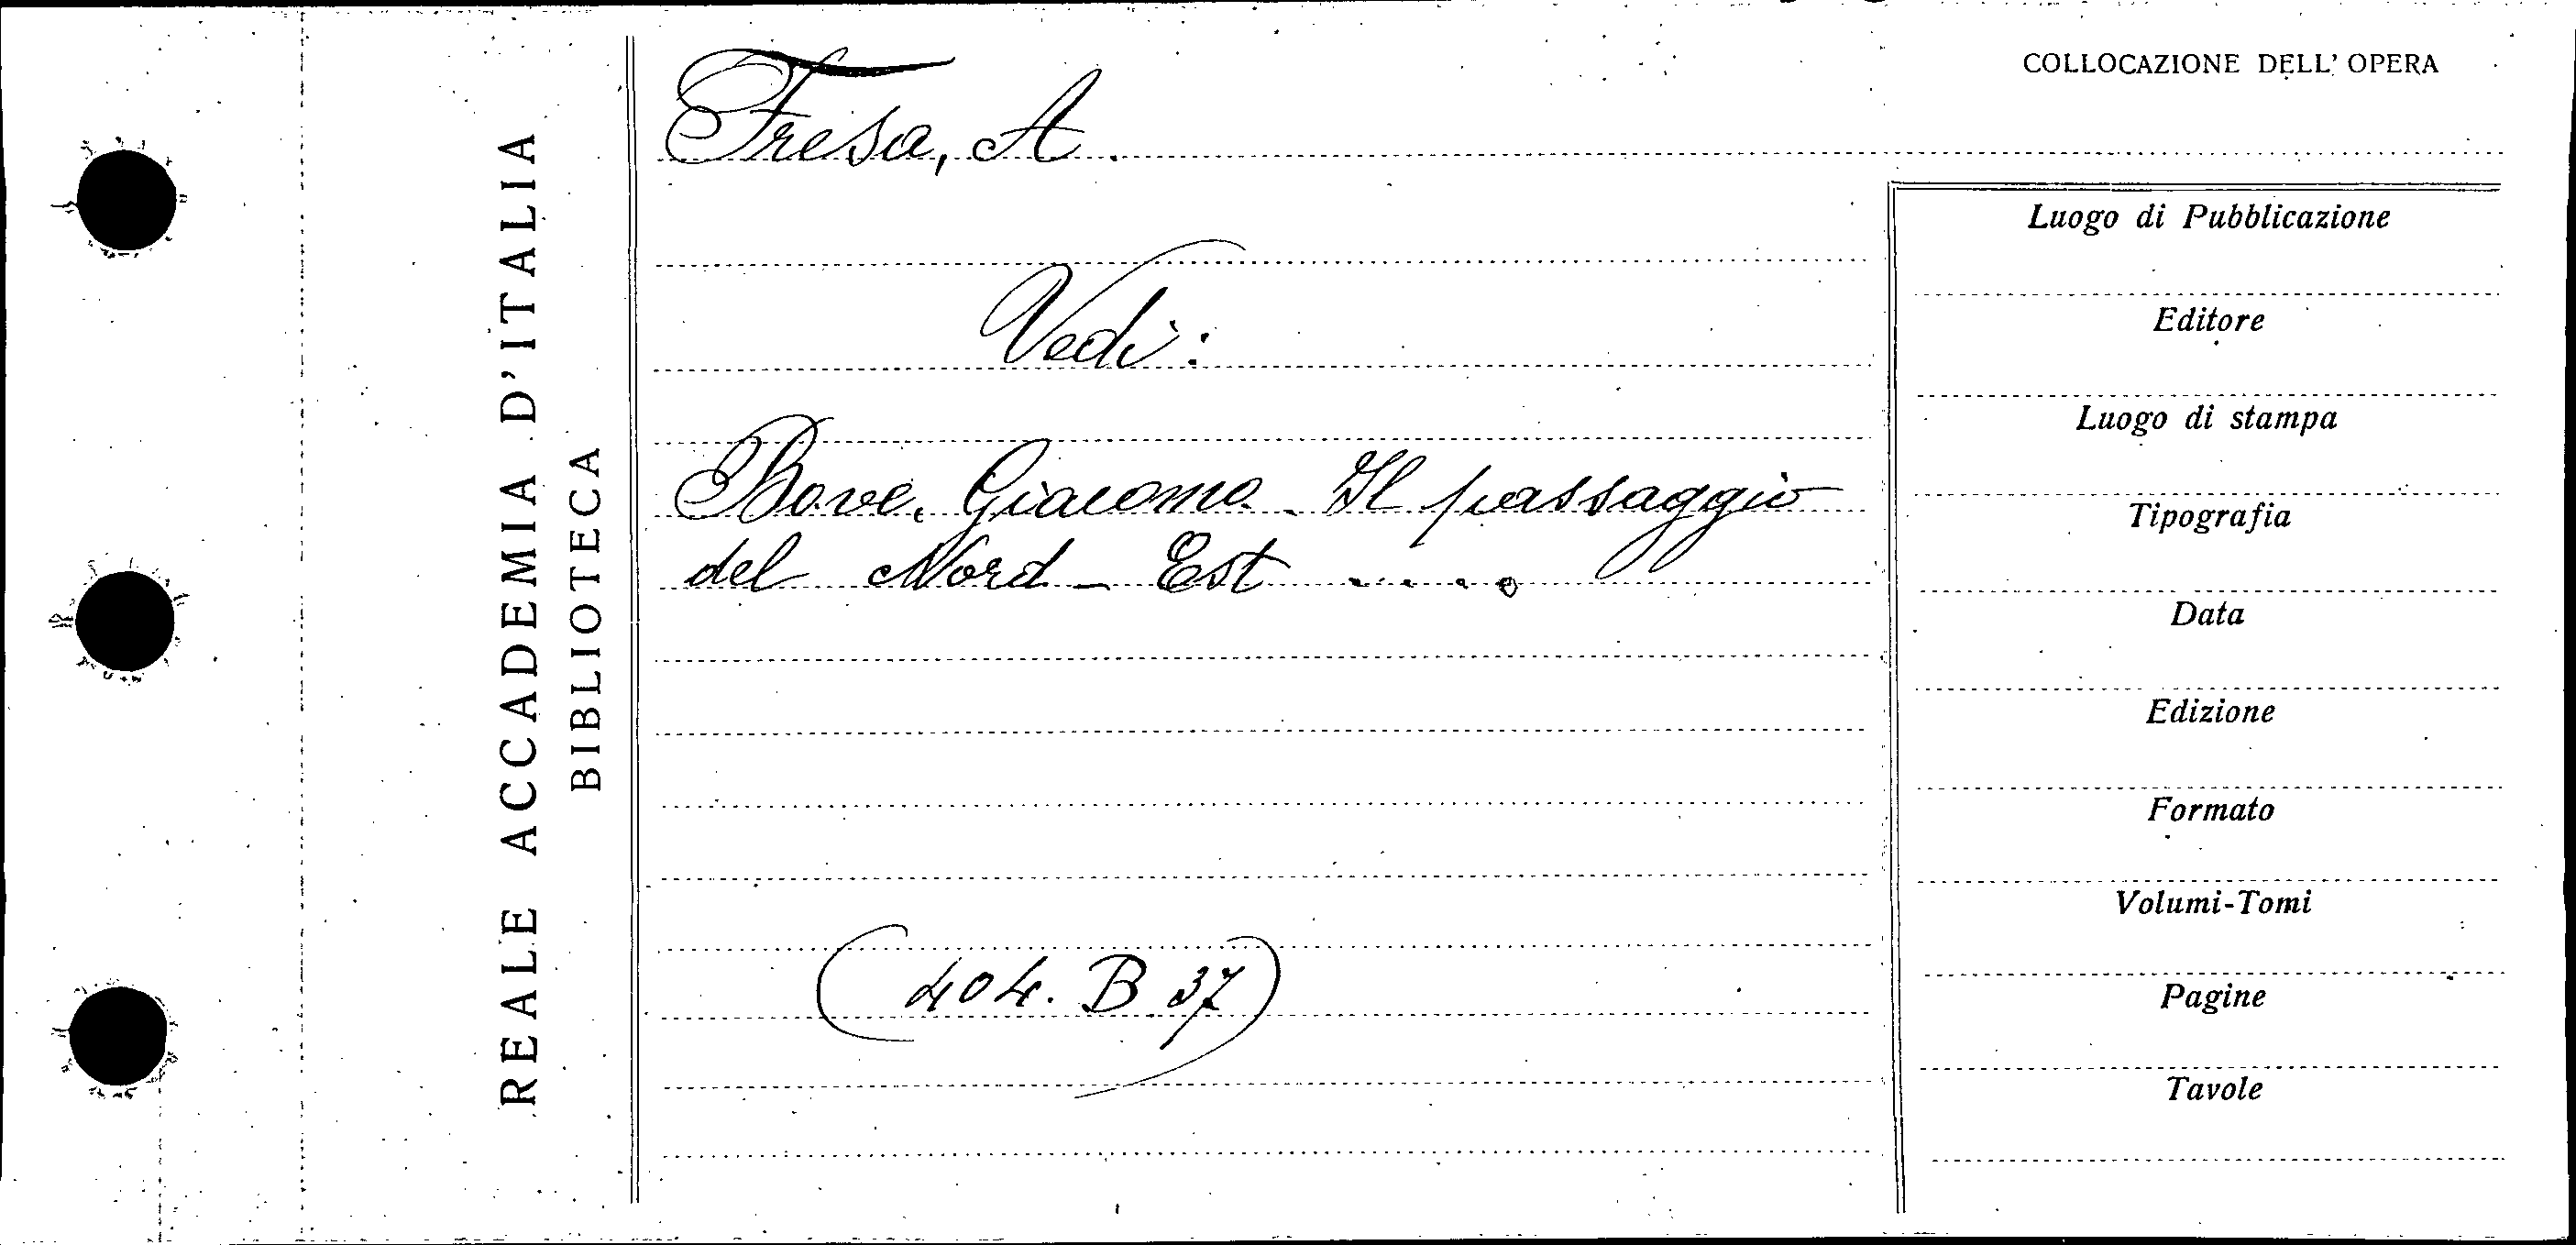 REALE ACCADEMIA D'ITALIA
BIBLIOTECA
Fresa, A.
Vedi:
Bove, Giacomo. Il passaggio
del Nord-Est .....
(404. B 37)
COLLOCAZIONE DELL' OPERA
Luogo di Pubblicazione
Editore
Luogo di stampa
Tipografia
Data
Edizione
Formato
Volumi-Tomi
Pagine
Tavole